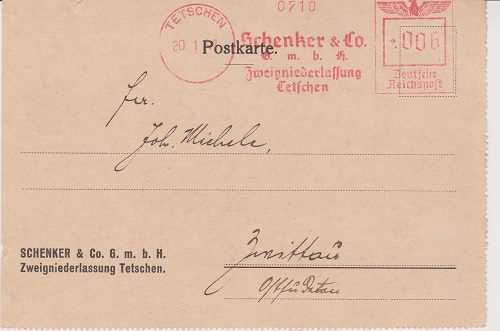 0710
TETSCHEN
20.1
Postkarte.
Schenker & Co.
G. m. b. H.
Zweigniederlassung
Tetschen
006
Deutsche
Reichspost
Fa.
Joh. Michels,
SCHENKER & Co. G. m. b. H.
Zweigniederlassung Tetschen.
Zwittau
Ostsudeten